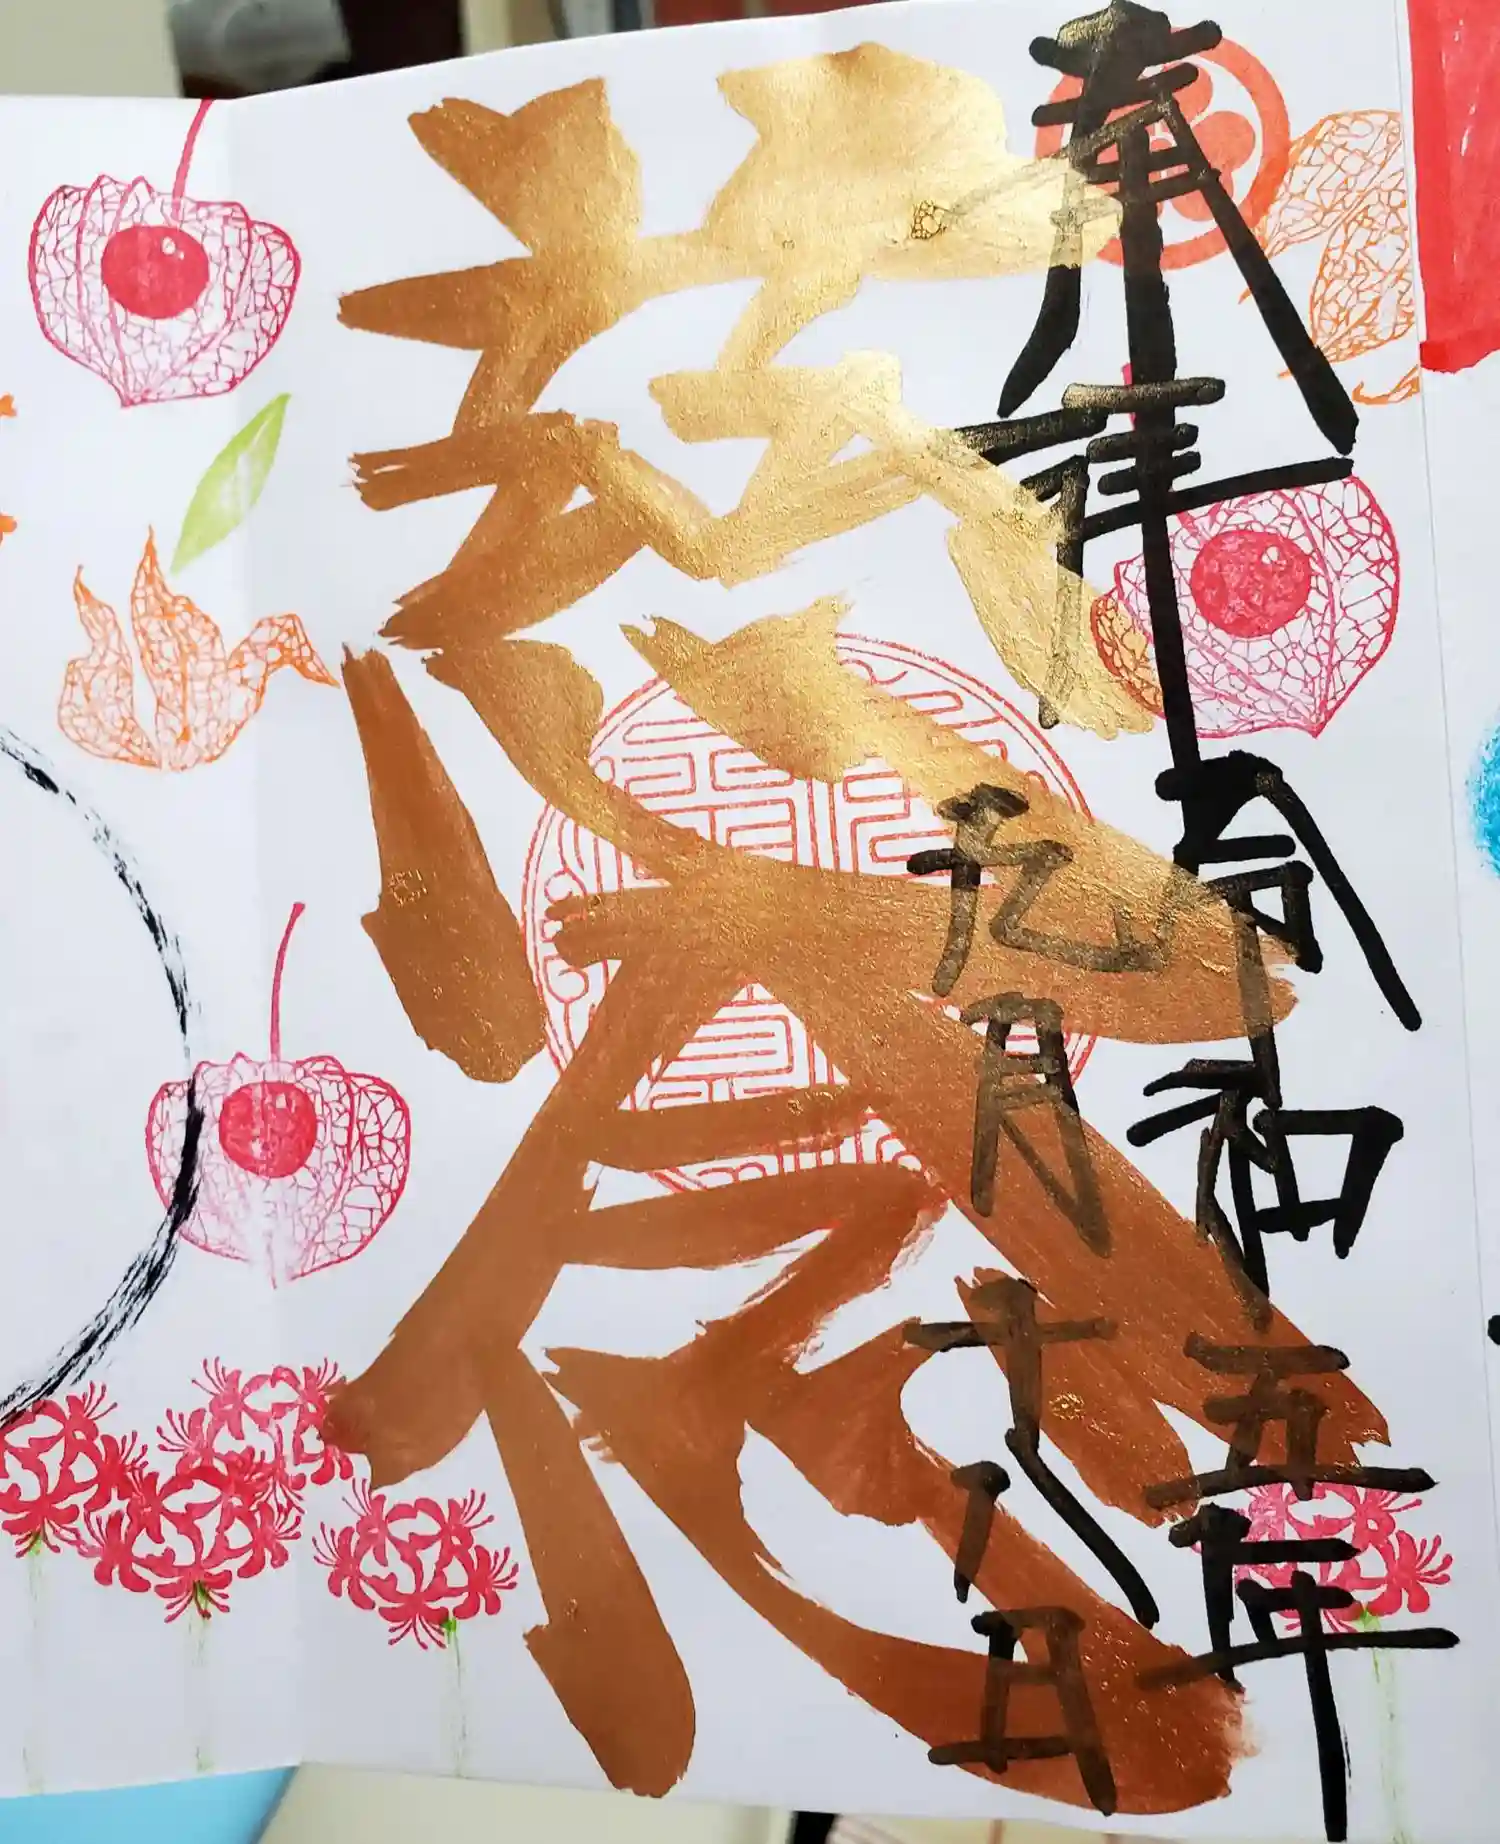 奉拝
令和五年
九月十八日
慈念